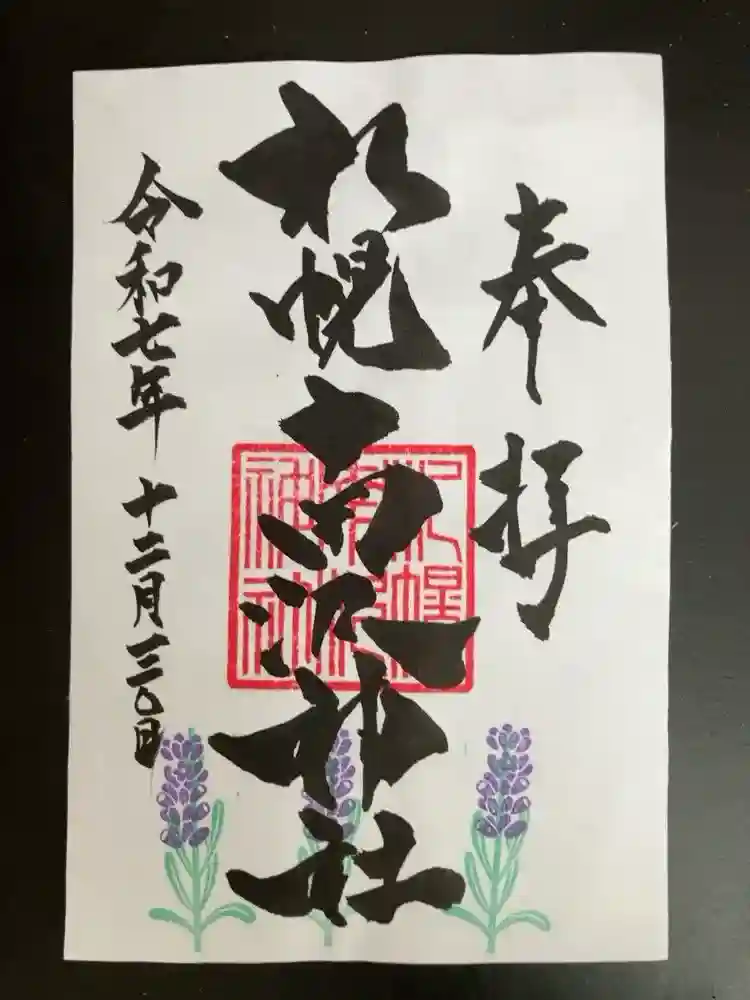 奉拝
札幌南沢神社
令和七年 十二月三〇日
札幌南沢神社